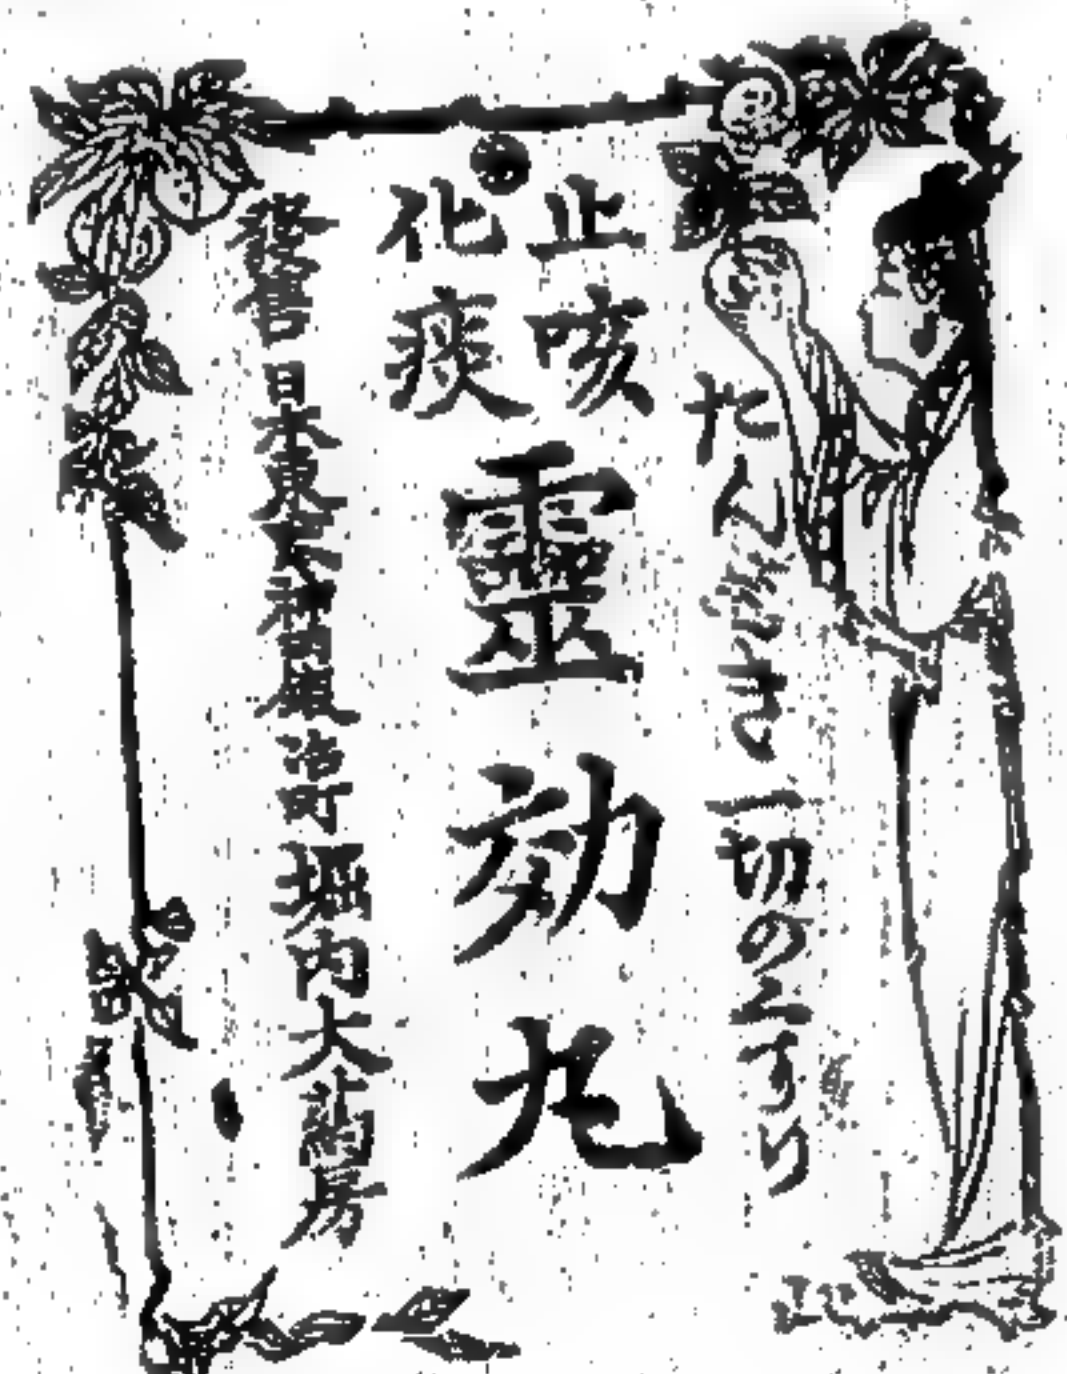 たんせき一切の工すり
止咳
化痰
靈効丸
發售 日本東京神田鍛冶町堀内大藥房